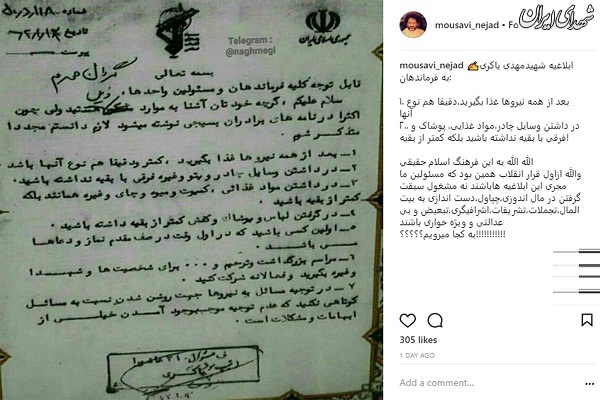 شماره
تاریخ
پیوست
Telegram :
@naghmegi
جمهوری اسلامی ایران
گردان حرم
بسمه تعالی
قابل توجه کلیه فرماندهان و مسئولین واحدها،
سلام علیکم، گرچه خودتان آشنا به موارد هستید ولی چون
اکثرا در نامه های برادران بسیجی نوشته میشود لازم دانستم مجددا
متذکر شوم
۱- بعد از همه نیروها غذا بگیرید، کمتر و دقیقا هم نوع آنها باشد
۲- در داشتن وسایل چادر و پتو وغیره فرقی با بقیه نداشته باشید.
۳- در داشتن مواد غذائی، کمپوت ومیوه و چای وغیره همانند بلکه
کمتر از بقیه باشید.
۴- در گرفتن لباس و پوشاک و کفش کمتر از بقیه داشته باشید.
۵- اولین کسی باشید که در اول وقت در صف مقدم نماز و دعاها
می باشد.
۶- مراسم بزرگداشت وترحیم و ... برای شخصیت ها و شهدا
وغیره بگیرید وفعالانه شرکت کنید.
۷- در توجیه مسائل به نیروها جهت روشن شدن نسبت به مسائل
کوتاهی نکنید که عدم توجیه موجب بوجود آمدن خیلی از
ابهامات و مشکلات است.
mousavi_nejad • Fo
شهدای ایران
mousavi_nejad ✍ابلاغیه شهیدمهدی باکری
به فرماندهان:
۱. بعد از همه نیروها غذا بگیرید،دقیقا هم نوع
آنها
۲.. در داشتن وسایل چادر،مواد غذایی، پوشاک و
افرقی با بقیه نداشته باشید بلکه کمتر از بقیه
الله الله به این فرهنگ اسلام حقیقی
والله ازاول قرار انقلاب همین بود که مسئولین ما
مجری این ابلاغیه هاباشند نه مشغول سبقت
گرفتن در مال اندوزی،چپاول،دست اندازی به بیت
المال،تجملات،تشریفات،اشرافیگری،تبعیض و بی
عدالتی و ویژه خواری باشند
به کجا میرویم؟؟؟؟؟!!!!!!!!!!!
305 likes
1 DAY AGO
Add a comment...